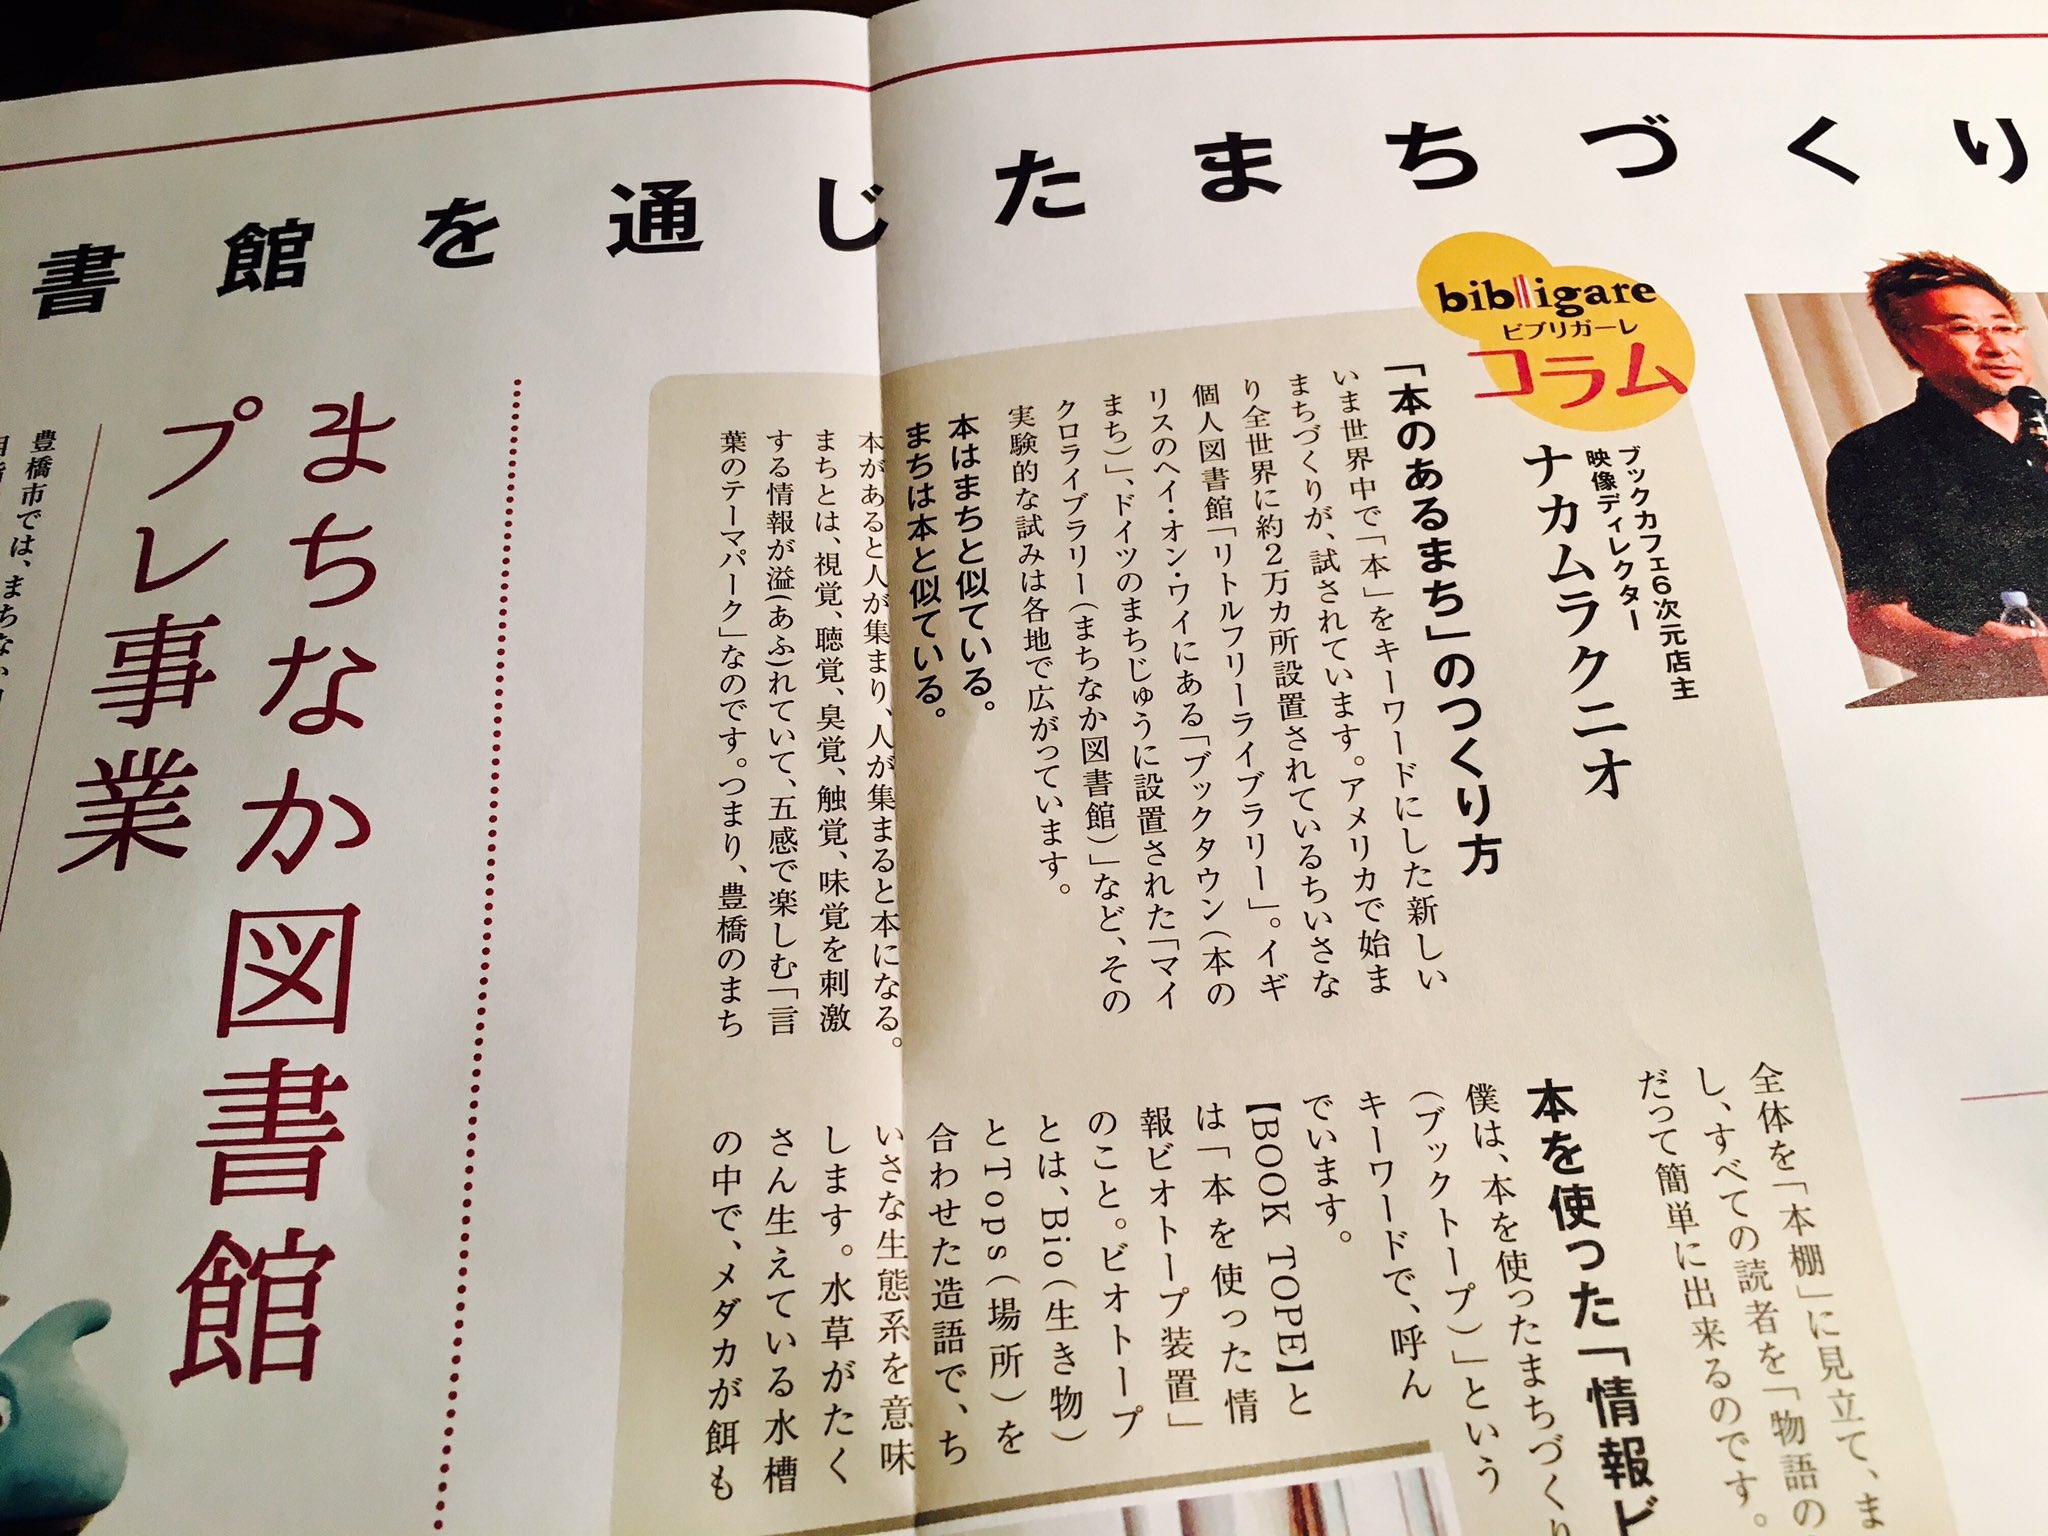 書館を通じたまちづくり
bibligare
ビブリガーレ
コラム
ブックカフェ6次元店主
映像ディレクター
ナカムラクニオ
「本のあるまち」のつくり方
いま世界中で「本」をキーワードにした新しい
まちづくりが、試されています。アメリカで始ま
り全世界に約2万カ所設置されているちいさな
個人図書館「リトルフリーライブラリー」。イギ
リスのヘイ・オン・ワイにある「ブックタウン(本の
まち)」、ドイツのまちじゅうに設置された「マイ
クロライブラリー(まちなか図書館)」など、その
実験的な試みは各地で広がっています。
本はまちと似ている。
まちは本と似ている。
本があると人が集まり、人が集まると本になる。
まちとは、視覚、聴覚、臭覚、触覚、味覚を刺激
する情報が溢(あふ)れていて、五感で楽しむ「言
葉のテーマパーク」なのです。つまり、豊橋のまち
全体を「本棚」に見立て、ま
し、すべての読者を「物語の
だって簡単に出来るのです。
本を使った「情報ビ
僕は、本を使ったまちづくり
(ブックトープ)」という
キーワードで、呼ん
でいます。
【BOOK TOPE】と
は「本を使った情
報ビオトープ装置」
のこと。ビオトープ
とは、Bio(生き物)
とTops(場所)を
合わせた造語で、ち
いさな生態系を意味
します。水草がたく
さん生えている水槽
の中で、メダカが餌も
まちなか図書館
プレ事業
豊橋市では、まちなか